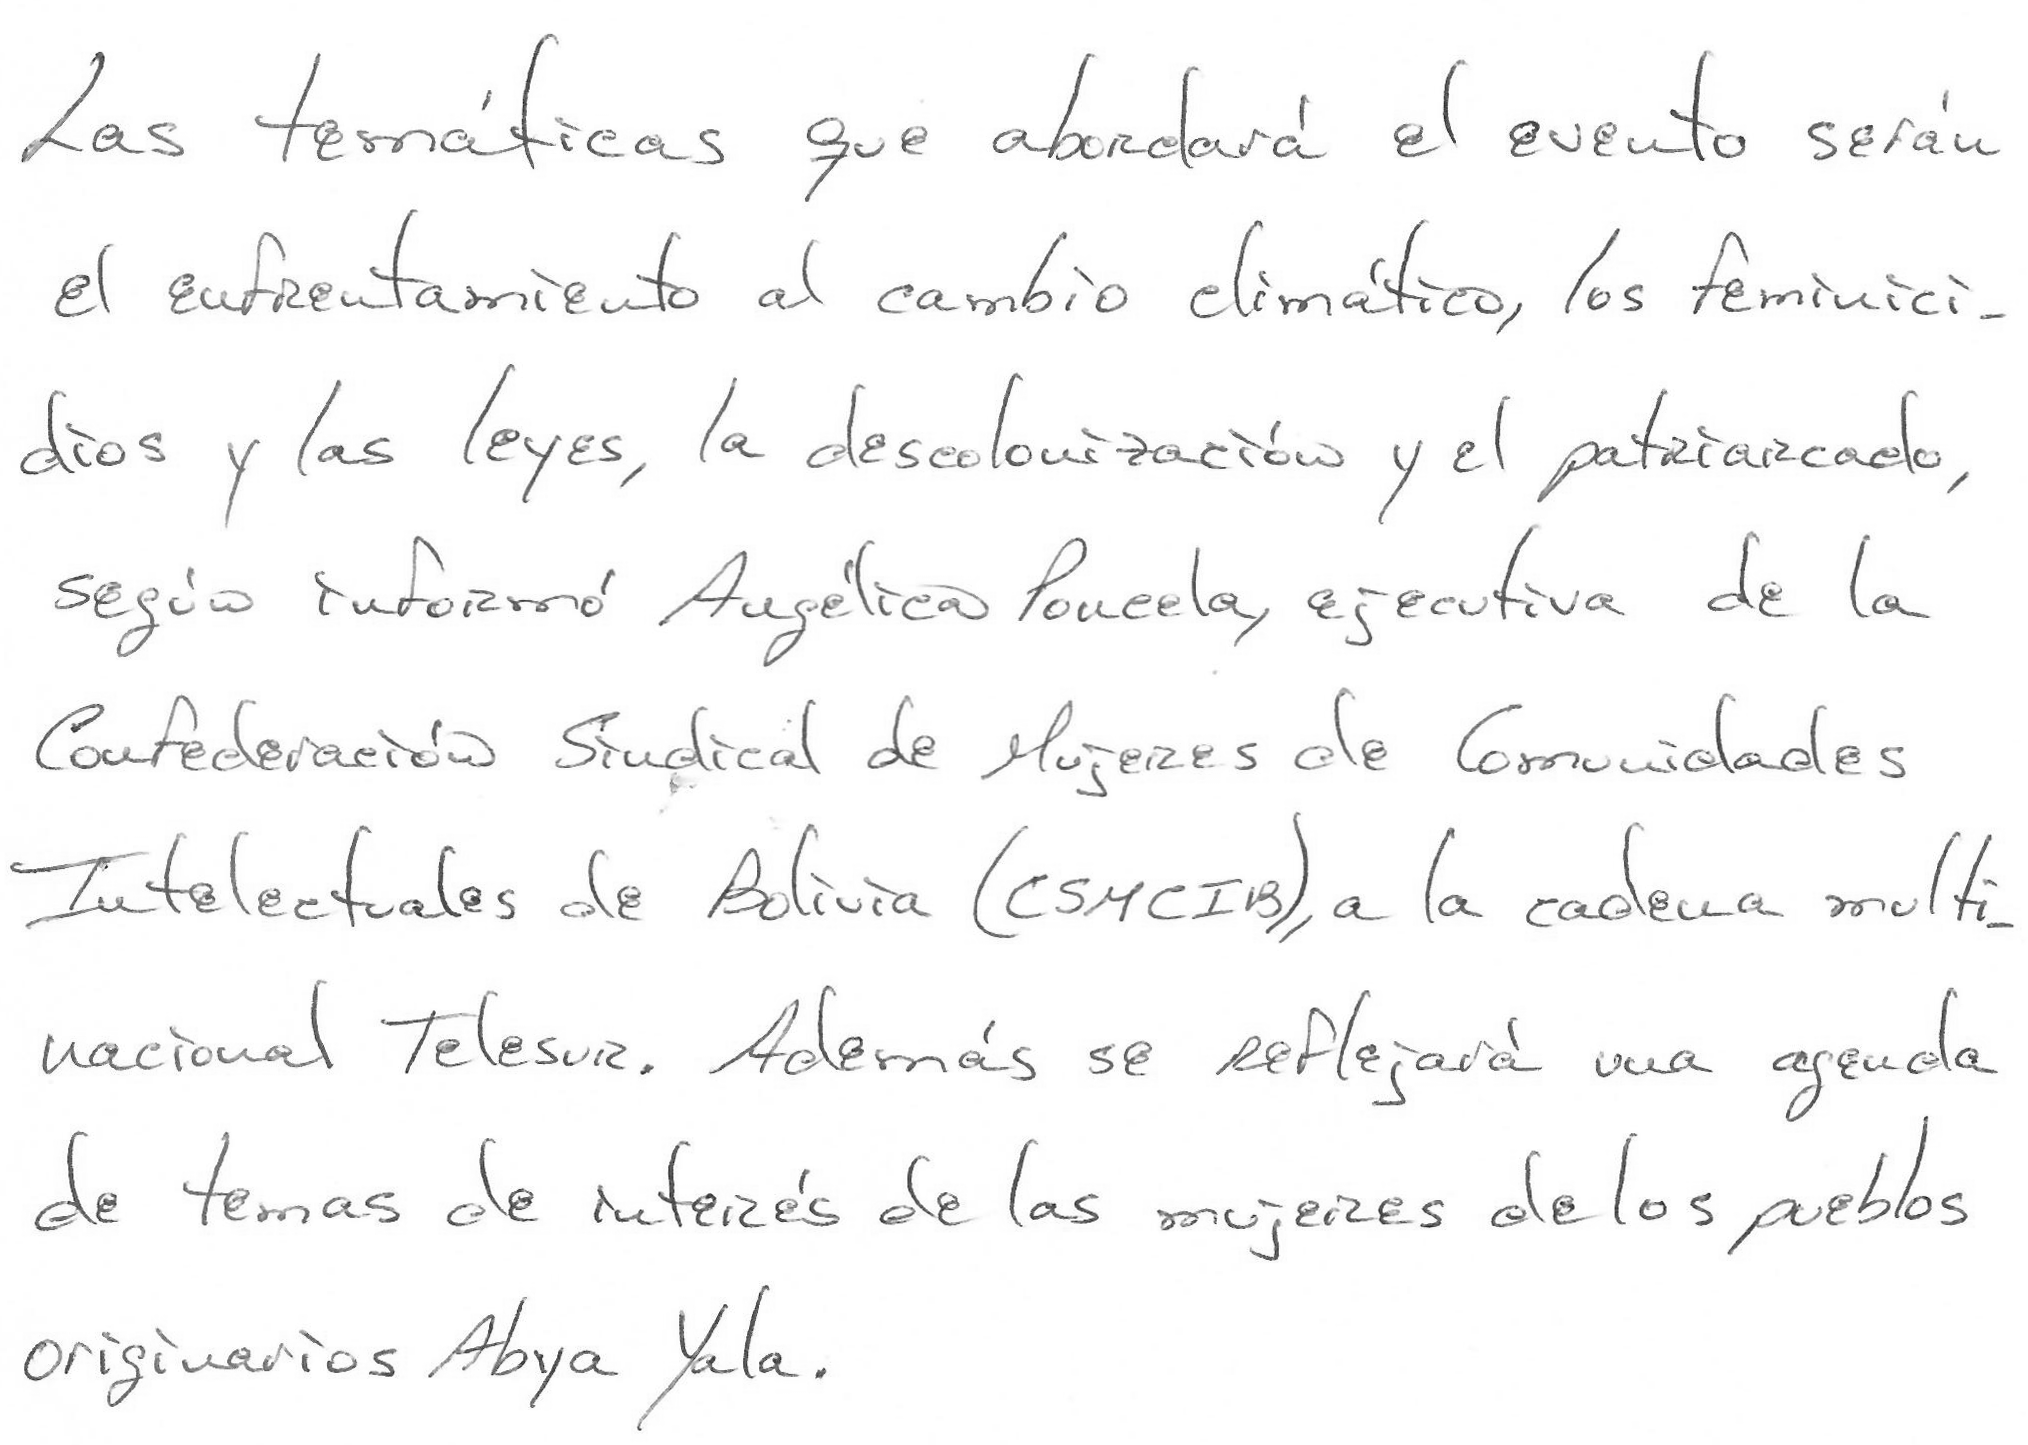 Las temáticas que abordará el evento serán
el enfrentamiento al cambio climático, los feminici-
dios y las leyes, la descolonización y el patriarcado,
según informó Angélica Poncela, ejecutiva de la
Confederación Sindical de Mujeres de Comunidades
Intelectuales de Bolivia (CSMCIB), a la cadena multi-
nacional Telesur. Además se reflejará una agenda
de temas de interés de las mujeres de los pueblos
originarios Abya Yala.